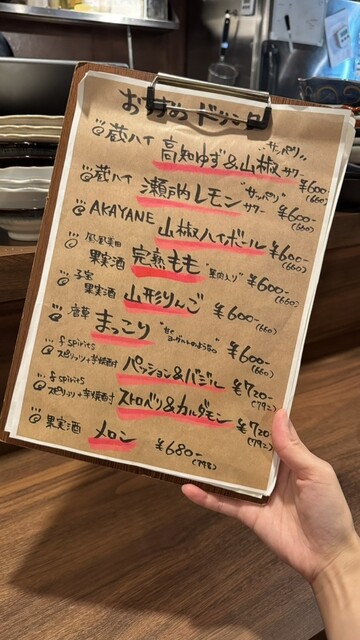 おすすめ ドリンク
蔵ハイ 高知ゆず&山椒サワー "サッパリ" ¥600- (660)
蔵ハイ 瀬戸内レモンサワー "サッパリ" ¥600- (660)
AKAYANE 山椒ハイボール ¥600- (660)
果実酒 完熟もも "果肉入り" ¥600- (660)
子宝 果実酒 山形りんご ¥600- (660)
唐草 まっこり ¥600- (660)
f spirits スピリッツ+芋焼酎 パッション&バジル ¥720- (792)
f spirits スピリッツ+芋焼酎 ストロベリ&カルダモン ¥720- (792)
果実酒 メロン ¥680- (748)